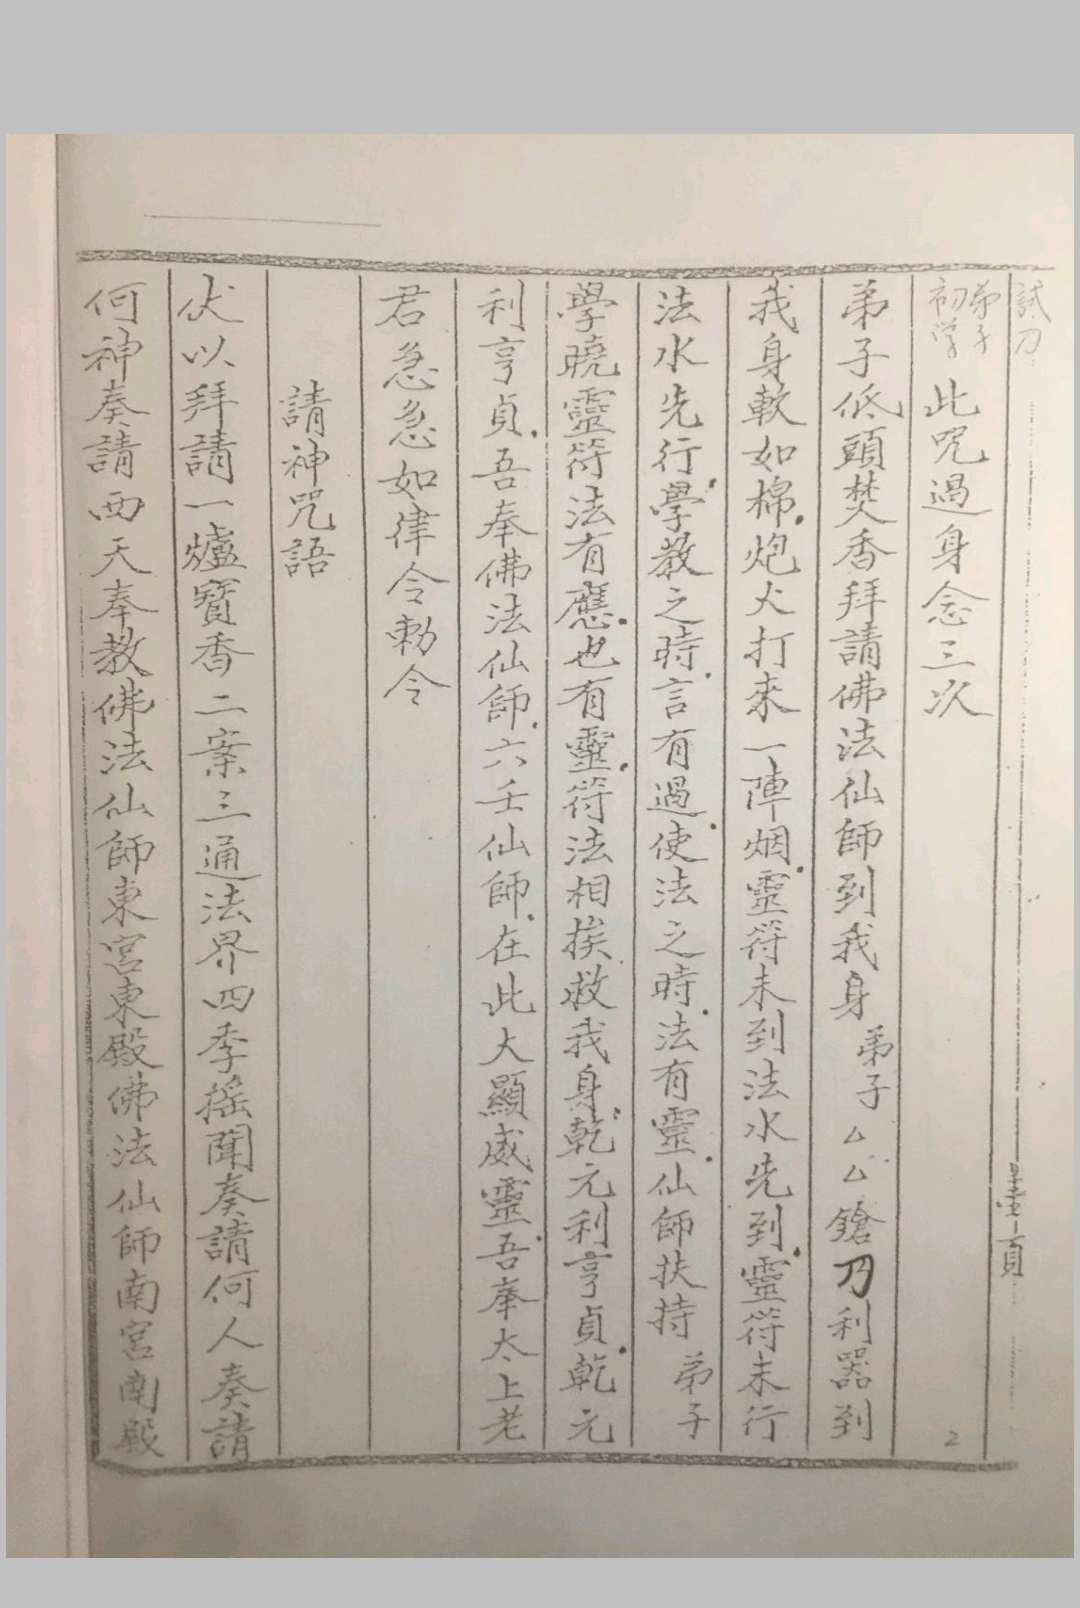 試刀
壹頁
弟子
初学
此咒過身念三次
2
弟子低頭焚香拜請佛法仙師到我身弟子△△鎗刀利器到
我身軟如棉炮火打來一陣烟靈符未到法水先到靈符未行
法水先行學教之時言有過使法之時法有靈仙師扶持弟子
學曉靈符法有應也有靈符法相挨救我身乾元利亨貞乾元
利亨貞吾奉佛法仙師六壬仙師在此大顯威靈吾奉太上老
君急急如律令勅令
請神咒語
伏以拜請一爐寶香二案三通法界四季搖聞奏請何人奏請
何神奏請西天奉教佛法仙師東宮東殿佛法仙師南宮南殿